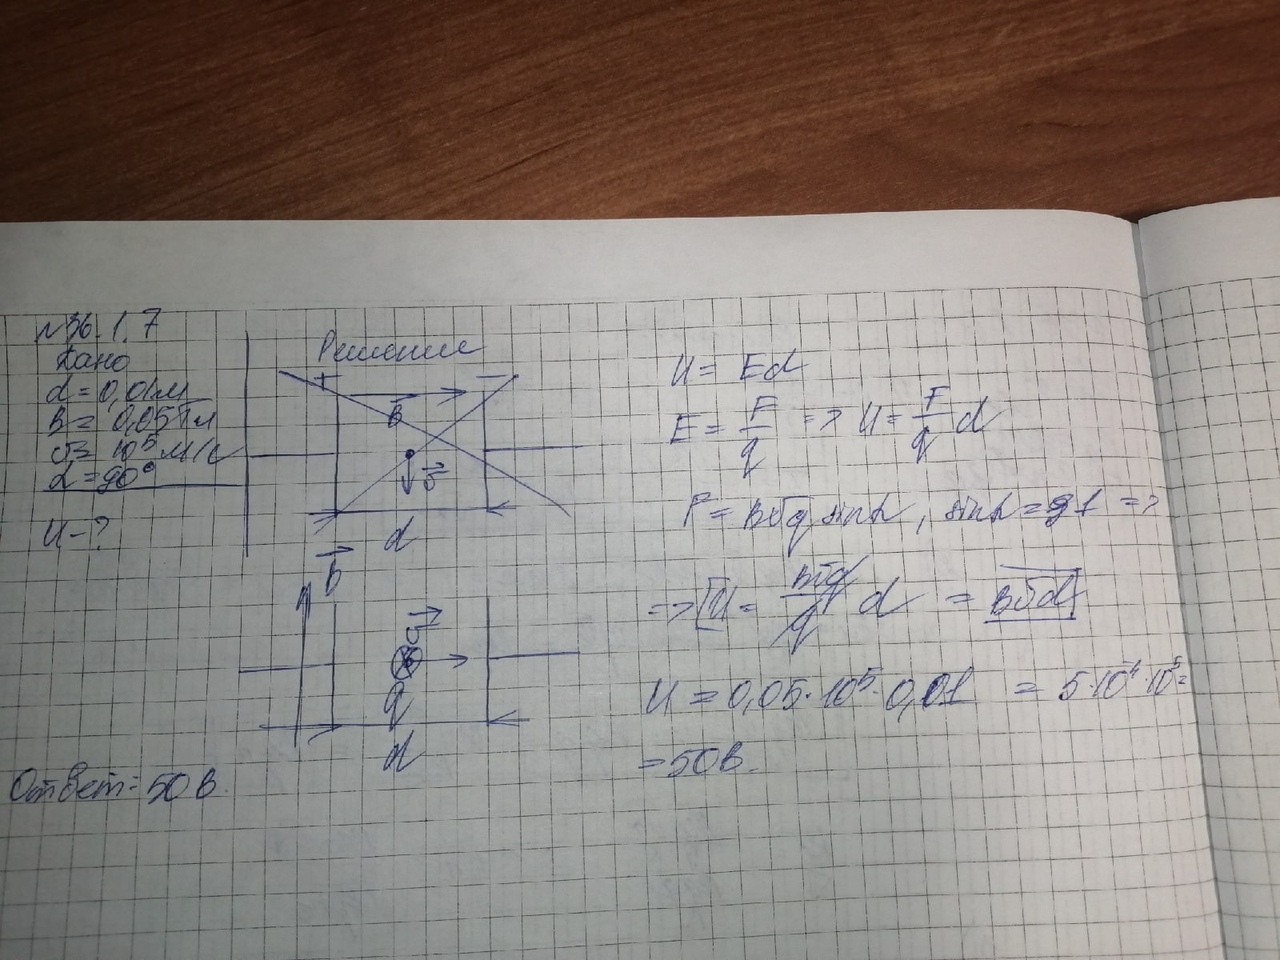 №36.1.7
Дано
d = 0,01м
B = 0,05Тл
υ = 10⁵ м/с
α = 90°
U - ?
Решение
+ −
B⃗
υ⃗
d
B⃗
q
d
U = Ed
E = F/q => U = F/q d
F = Bυq sinα, sinα = 1 =>
=> U = Bυq/q d = Bυd
U = 0,05·10⁵·0,01 = 5·10⁻⁴·10⁵=
=50В.
Ответ: 50 В.